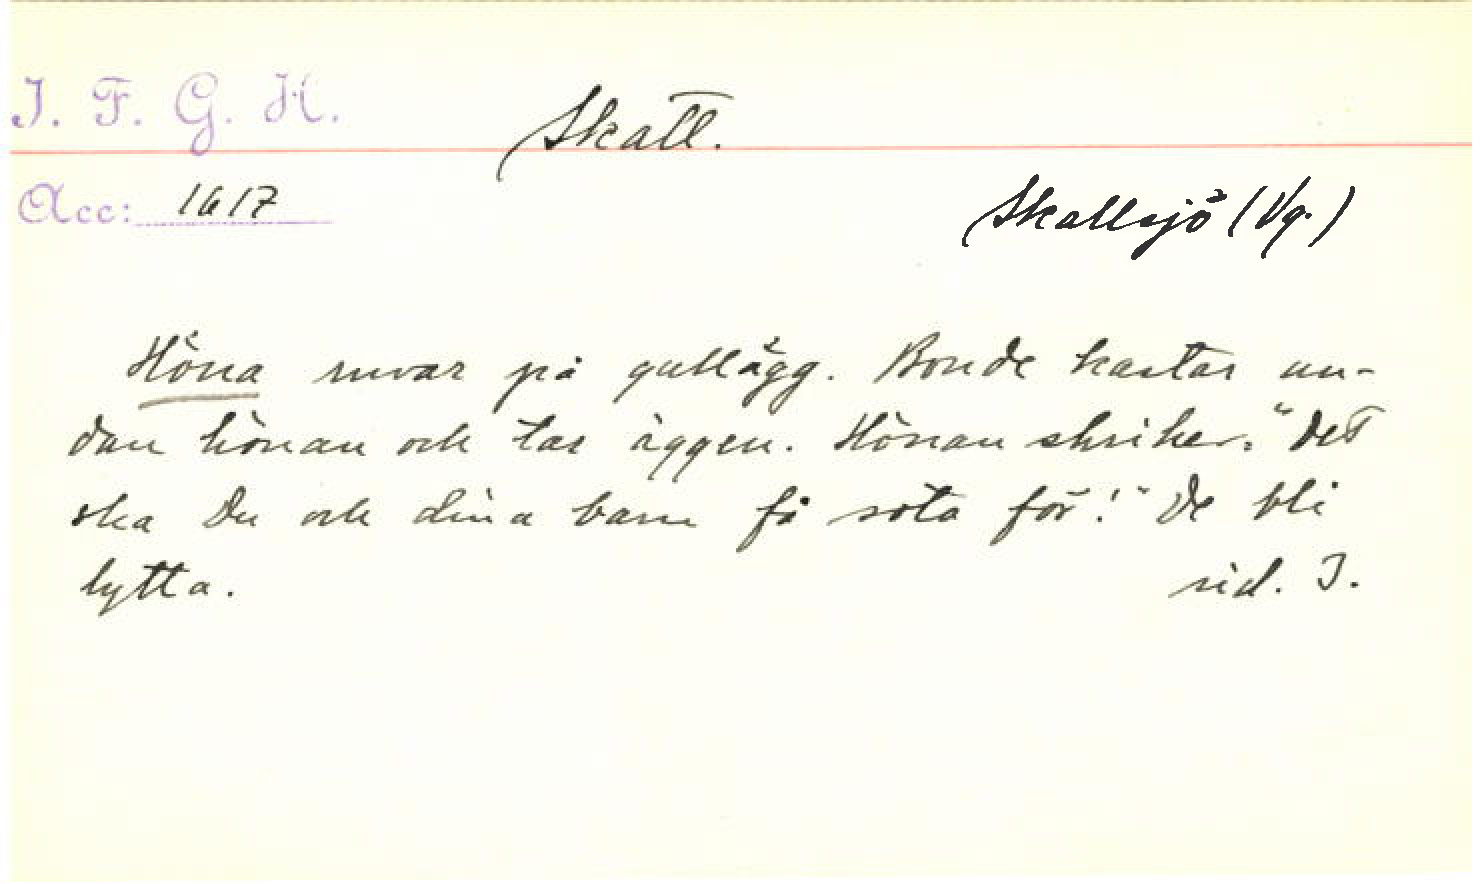 I. F. G. H.
Skatt.
Acc: 1617
Skallsjö (Vg.)
Höna ruvar på gullägg. Bonde kastar un-
dan hönan och tar äggen. Hönan skriker: "Det
ska Du och dina barn få sota för!" De bli
lytta.
sid. I.